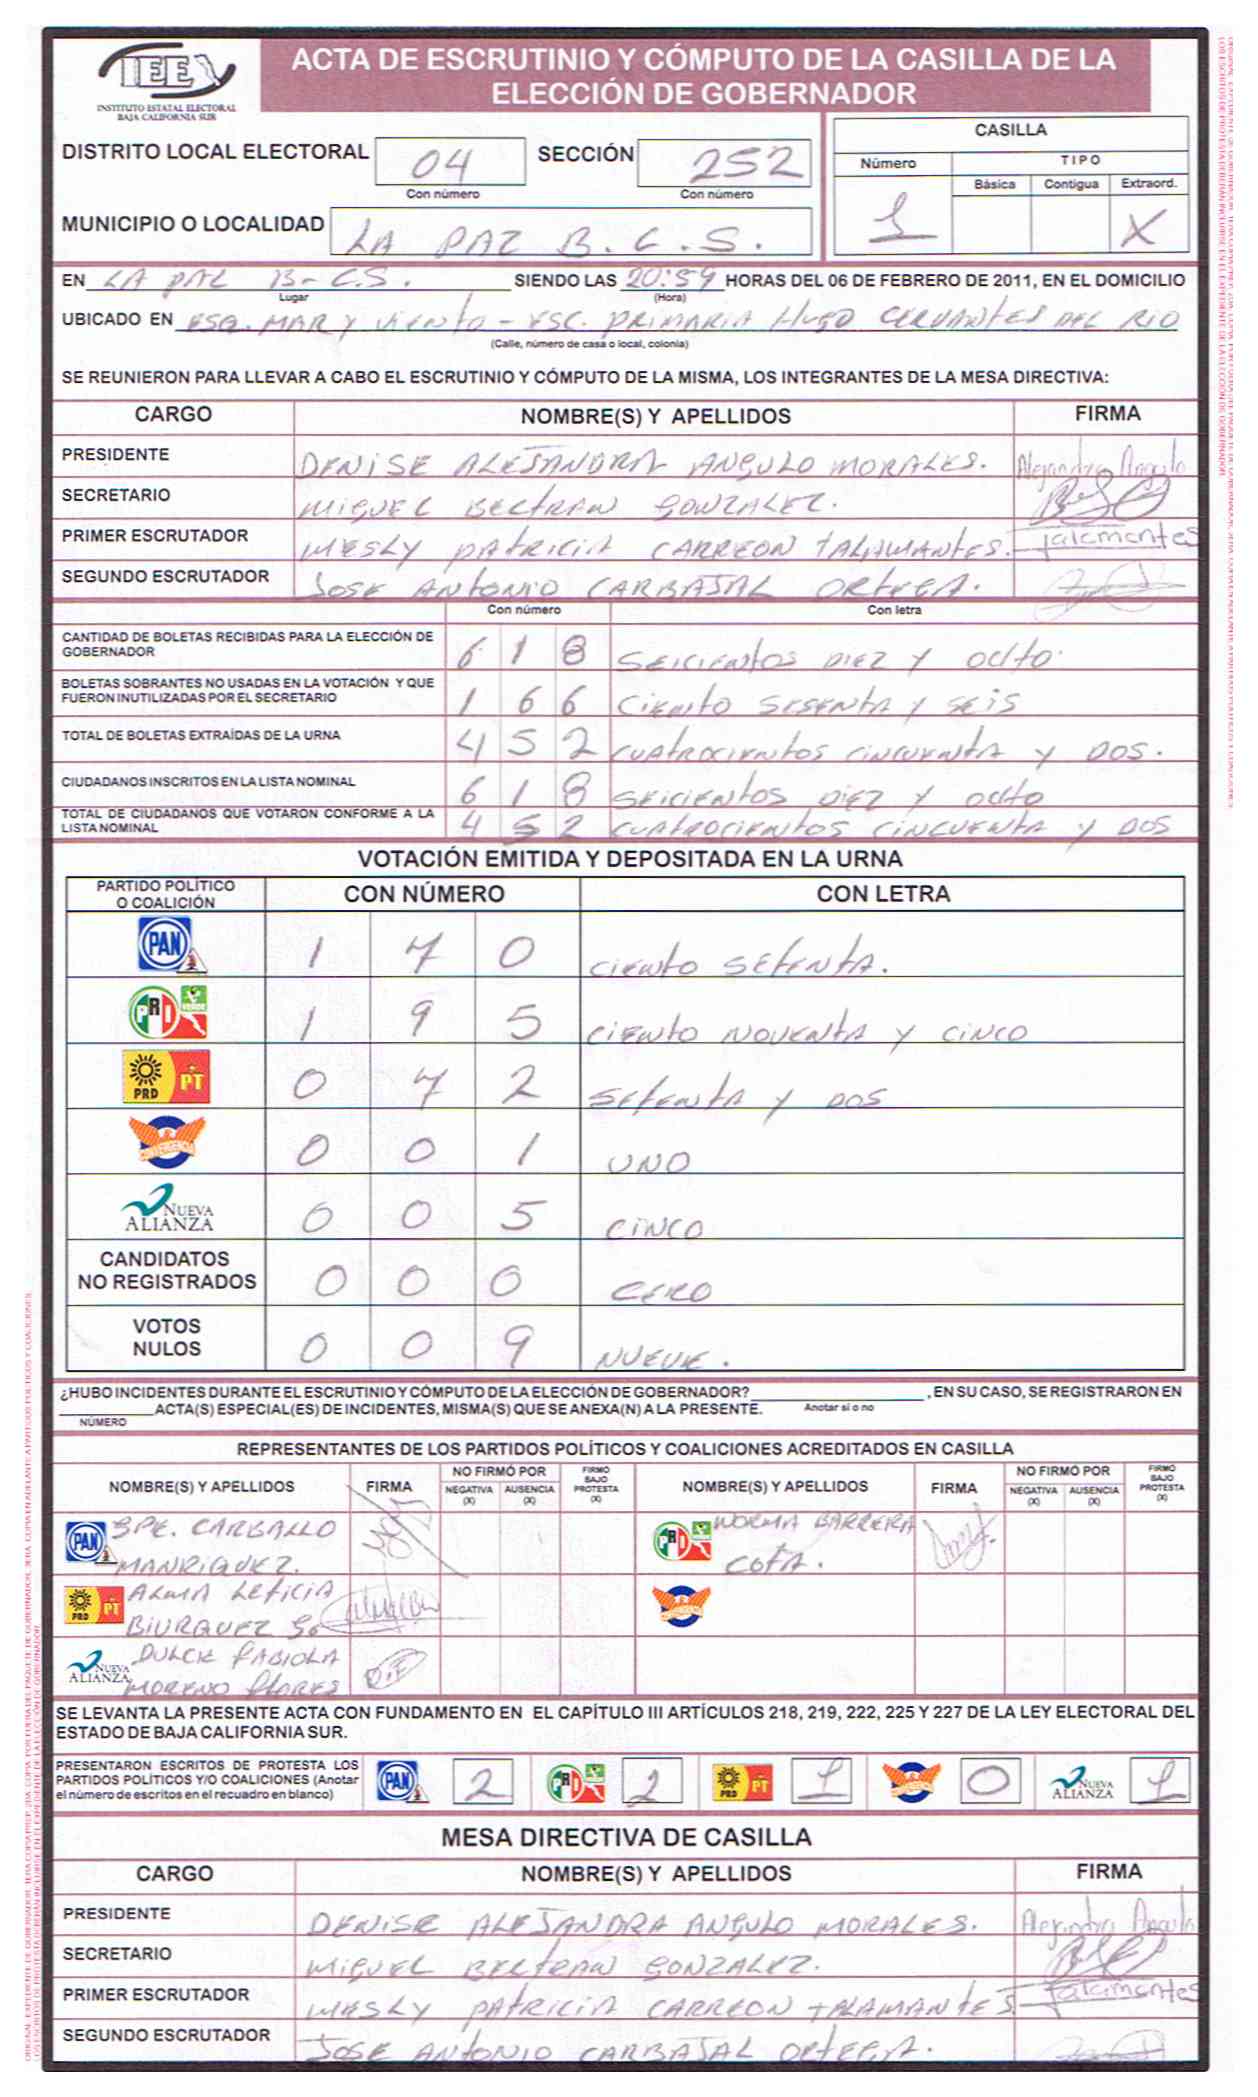 IEE
INSTITUTO ESTATAL ELECTORAL
BAJA CALIFORNIA SUR
ACTA DE ESCRUTINIO Y CÓMPUTO DE LA CASILLA DE LA
ELECCIÓN DE GOBERNADOR
DISTRITO LOCAL ELECTORAL 04 SECCIÓN 252
Con número Con número
MUNICIPIO O LOCALIDAD LA PAZ B.C.S.
CASILLA
Número TIPO
Básica Contigua Extraord.
1 X
EN LA PAZ B-C.S. SIENDO LAS 20:59 HORAS DEL 06 DE FEBRERO DE 2011, EN EL DOMICILIO
Lugar (Hora)
UBICADO EN ESQ. MAR Y VIENTO - ESC. PRIMARIA HUGO CERVANTES DEL RIO
(Calle, número de casa o local, colonia)
SE REUNIERON PARA LLEVAR A CABO EL ESCRUTINIO Y CÓMPUTO DE LA MISMA, LOS INTEGRANTES DE LA MESA DIRECTIVA:
CARGO NOMBRE(S) Y APELLIDOS FIRMA
PRESIDENTE DENISE ALEJANDRA ANGULO MORALES. Alejandra Angulo
SECRETARIO MIGUEL BELTRAN GONZALEZ.
PRIMER ESCRUTADOR MESLY PATRICIA CARREON TALAMANTES. Talamantes
SEGUNDO ESCRUTADOR JOSE ANTONIO CARBAJAL ORTEGA.
Con número Con letra
CANTIDAD DE BOLETAS RECIBIDAS PARA LA ELECCIÓN DE
GOBERNADOR 6 1 8 SEICIENTOS DIEZ Y OCHO.
BOLETAS SOBRANTES NO USADAS EN LA VOTACIÓN Y QUE
FUERON INUTILIZADAS POR EL SECRETARIO 1 6 6 CIENTO SESENTA Y SEIS
TOTAL DE BOLETAS EXTRAÍDAS DE LA URNA 4 5 2 CUATROCIENTOS CINCUENTA Y DOS.
CIUDADANOS INSCRITOS EN LA LISTA NOMINAL 6 1 8 SEICIENTOS DIEZ Y OCHO
TOTAL DE CIUDADANOS QUE VOTARON CONFORME A LA
LISTA NOMINAL 4 5 2 CUATROCIENTOS CINCUENTA Y DOS
VOTACIÓN EMITIDA Y DEPOSITADA EN LA URNA
PARTIDO POLÍTICO
O COALICIÓN CON NÚMERO CON LETRA
PAN 1 7 0 CIENTO SETENTA.
PRI VERDE 1 9 5 CIENTO NOVENTA Y CINCO
PRD PT 0 7 2 SETENTA Y DOS
CONVERGENCIA 0 0 1 UNO
NUEVA
ALIANZA 0 0 5 CINCO
CANDIDATOS
NO REGISTRADOS 0 0 0 CERO
VOTOS
NULOS 0 0 9 NUEVE.
¿HUBO INCIDENTES DURANTE EL ESCRUTINIO Y CÓMPUTO DE LA ELECCIÓN DE GOBERNADOR? , EN SU CASO, SE REGISTRARON EN
ACTA(S) ESPECIAL(ES) DE INCIDENTES, MISMA(S) QUE SE ANEXA(N) A LA PRESENTE. Anotar sí o no
NÚMERO
REPRESENTANTES DE LOS PARTIDOS POLÍTICOS Y COALICIONES ACREDITADOS EN CASILLA
NOMBRE(S) Y APELLIDOS FIRMA NO FIRMÓ POR NEGATIVA (X) AUSENCIA (X) FIRMÓ BAJO PROTESTA (X) NOMBRE(S) Y APELLIDOS FIRMA NO FIRMÓ POR NEGATIVA (X) AUSENCIA (X) FIRMÓ BAJO PROTESTA (X)
PAN CARBALLO PRI NORMA BARRERA
MANRIQUEZ. COTA.
PRD PT ALMA LETICIA
BIURQUEZ
NUEVA ALIANZA DULCE FABIOLA
MORENO FLORES
SE LEVANTA LA PRESENTE ACTA CON FUNDAMENTO EN EL CAPÍTULO III ARTÍCULOS 218, 219, 222, 225 Y 227 DE LA LEY ELECTORAL DEL
ESTADO DE BAJA CALIFORNIA SUR.
PRESENTARON ESCRITOS DE PROTESTA LOS
PARTIDOS POLÍTICOS Y/O COALICIONES (Anotar
el número de escritos en el recuadro en blanco) PAN 2 PRI 2 PRD PT 1 0 NUEVA ALIANZA 1
MESA DIRECTIVA DE CASILLA
CARGO NOMBRE(S) Y APELLIDOS FIRMA
PRESIDENTE DENISE ALEJANDRA ANGULO MORALES. Alejandra Angulo
SECRETARIO MIGUEL BELTRAN GONZALEZ.
PRIMER ESCRUTADOR MESLY PATRICIA CARREON TALAMANTES Talamantes
SEGUNDO ESCRUTADOR JOSE ANTONIO CARBAJAL ORTEGA.